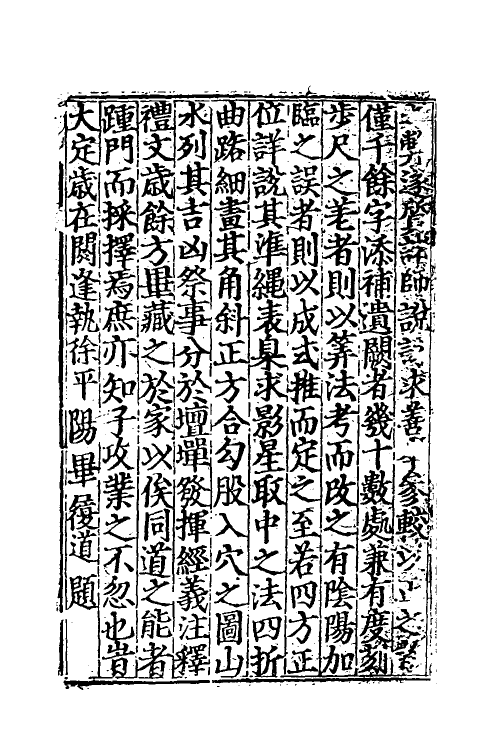 遂啓師說求善參較之
僅千餘字添補遺闕者幾十數處兼有度刻
步尺之差者則以筭法考而改之有陰陽加
臨之誤者則以成式推而定之至若四方正
位詳說其準繩表臬求影星取中之法四折
曲路細畫其角斜正方合勾股入穴之圖山
水列其吉凶祭事分於壇墠發揮經義注釋
禮文歲餘方畢藏之於家以俟同道之能者
踵門而採擇焉庶亦知予攻業之不忽也旹
大定歲在閼逢執徐平陽畢履道題